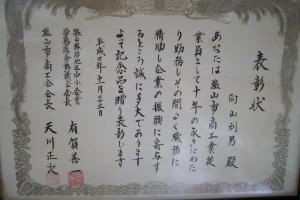 表彰状
向山利男 殿
あなたは塩山市商工業従
業員として十年の永きにわた
り勤務しその間よく職務に
精励し企業の振興に寄与す
るところ誠に多大であります
よって記念品を贈り表彰します
平成二年十一月二十三日
塩山市商工会会長 天川正次